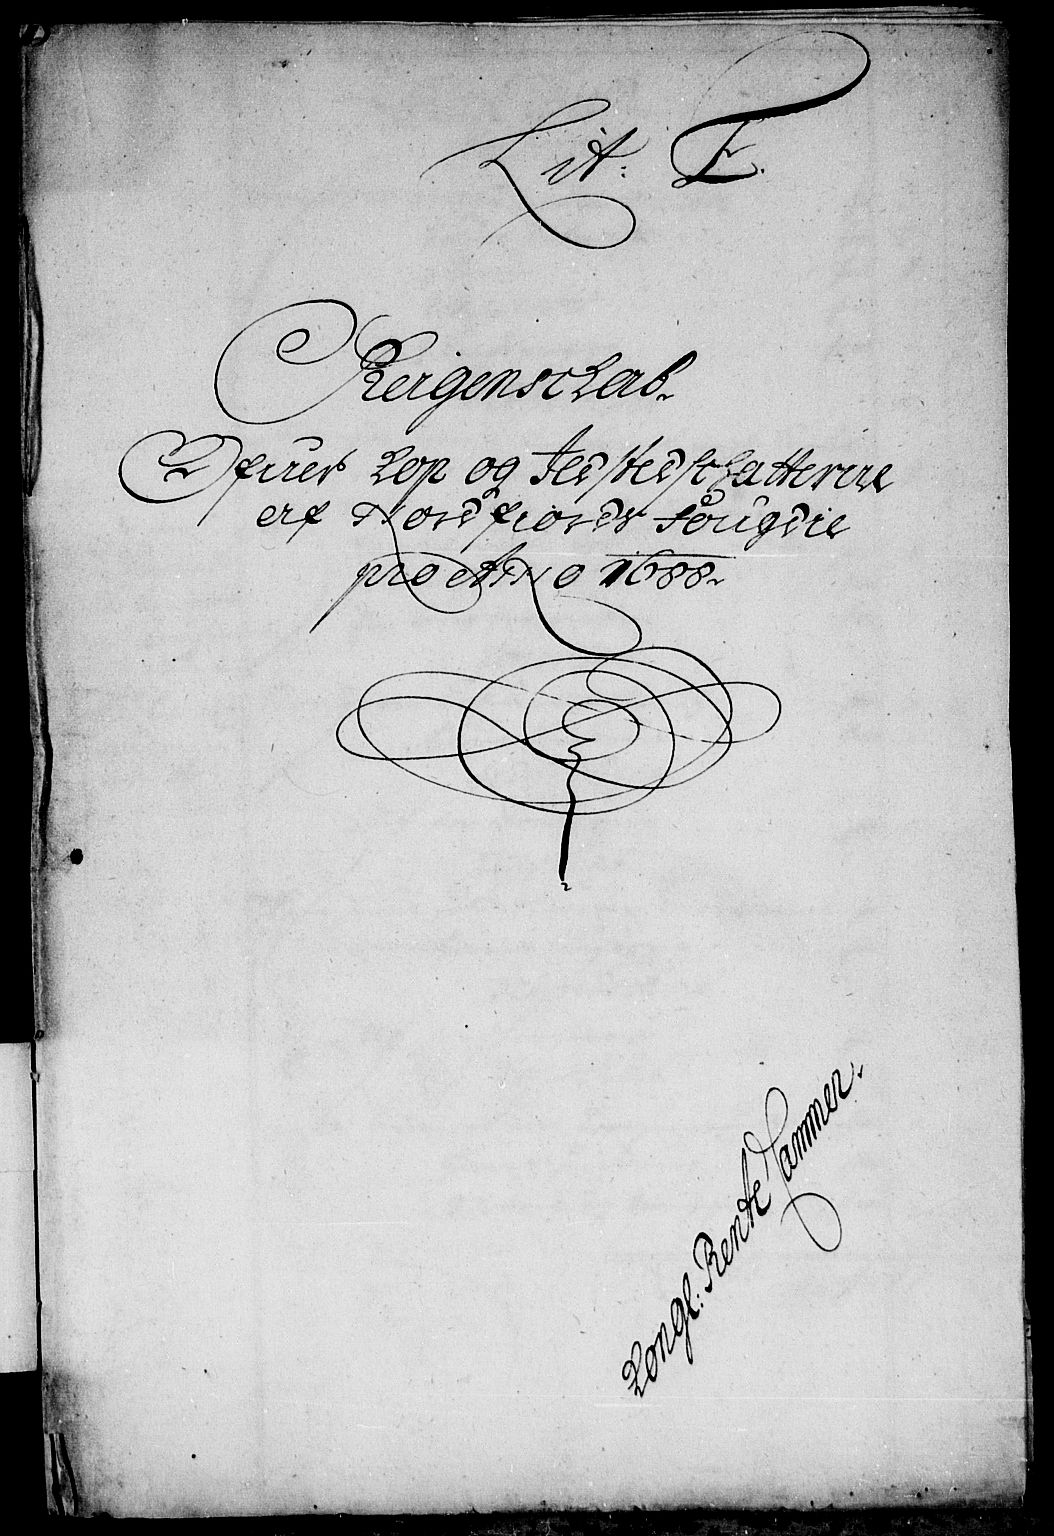 Lit: F.
Reigenschab.
Ofuer Kop og Ildstedschatterne
af Nordfiorder fougdie
pro Anno 1688.
Kongl: Rente Cammer.